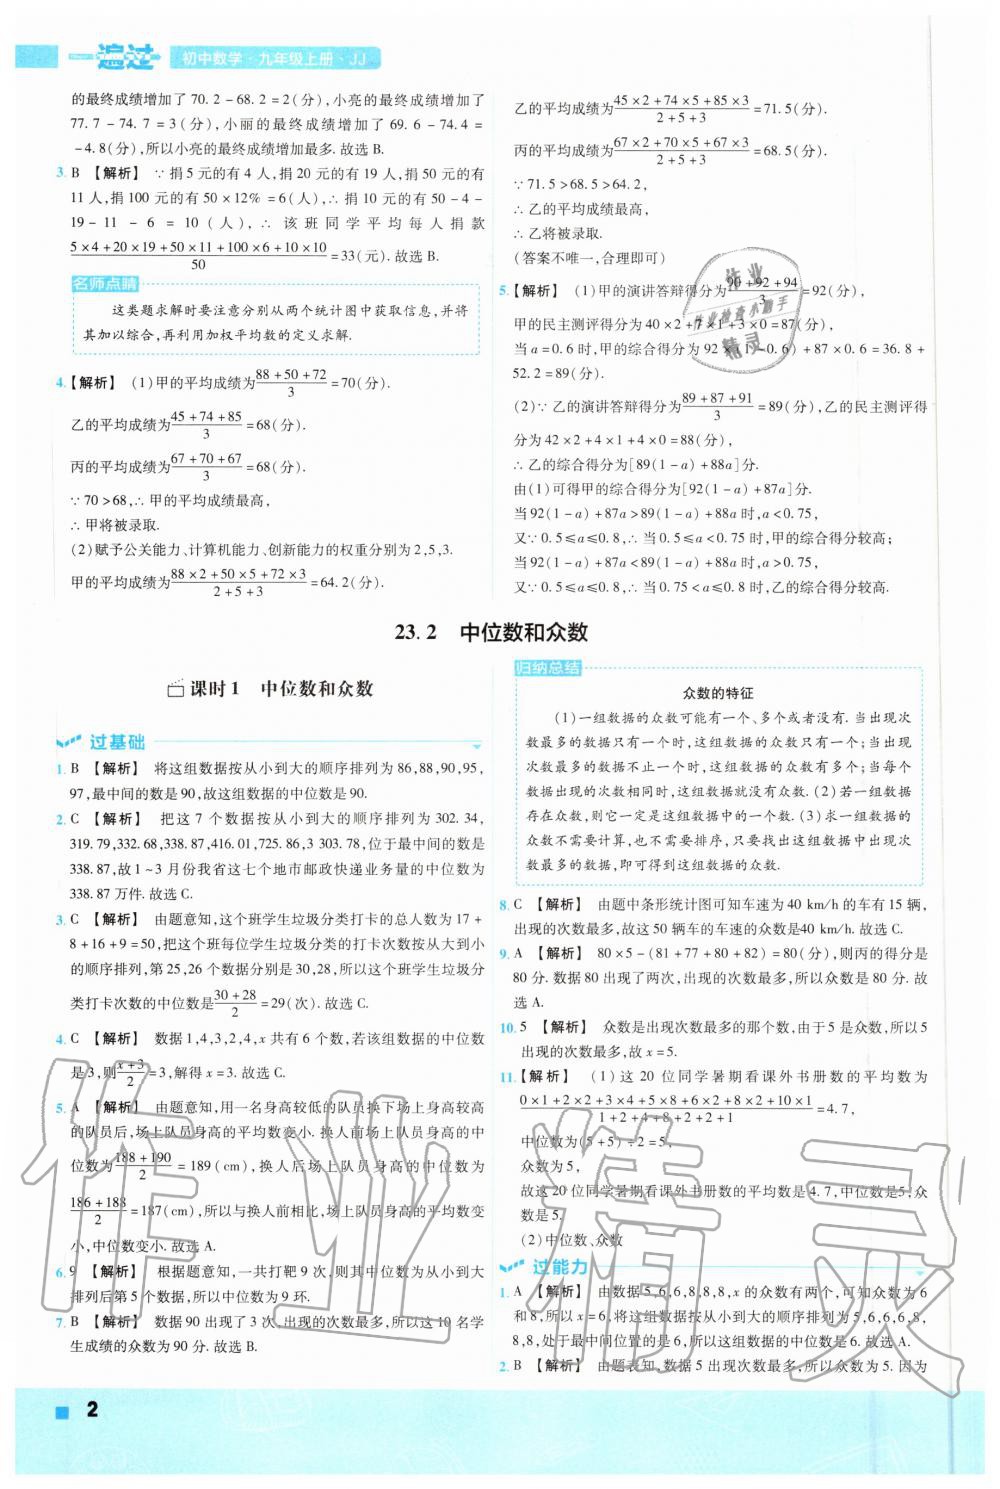 一遍过 初中数学·九年级上册·JJ
的最终成绩增加了 70.2-68.2=2(分),小亮的最终成绩增加了
77.7-74.7=3(分),小丽的最终成绩增加了 69.6-74.4=
-4.8(分),所以小亮的最终成绩增加最多.故选 B.
3. B 【解析】 ∵捐 5 元的有 4 人,捐 20 元的有 19 人,捐 50 元的有
11 人,捐 100 元的有 50×12%=6(人),∴捐 10 元的有 50-4-
19-11-6=10(人),∴该班同学平均每人捐款
(5×4+20×19+50×11+100×6+10×10)/50=33(元).故选 B.
名师点睛
这类题求解时要注意分别从两个统计图中获取信息,并将
其加以综合,再利用加权平均数的定义求解.
4.【解析】 (1)甲的平均成绩为(88+50+72)/3=70(分).
乙的平均成绩为(45+74+85)/3=68(分).
丙的平均成绩为(67+70+67)/3=68(分).
∵70>68,∴甲的平均成绩最高,
∴甲将被录取.
(2)赋予公关能力、计算机能力、创新能力的权重分别为 2,5,3.
甲的平均成绩为(88×2+50×5+72×3)/(2+5+3)=64.2(分).
乙的平均成绩为(45×2+74×5+85×3)/(2+5+3)=71.5(分).
丙的平均成绩为(67×2+70×5+67×3)/(2+5+3)=68.5(分).
∵71.5>68.5>64.2,
∴乙的平均成绩最高,
∴乙将被录取.
(答案不唯一,合理即可)
5.【解析】 (1)甲的演讲答辩得分为(90+92+94)/3=92(分),
甲的民主测评得分为 40×2+7×1+3×0=87(分),
当 a=0.6 时,甲的综合得分为 92×(1-0.6)+87×0.6=36.8+
52.2=89(分).
(2)∵乙的演讲答辩得分为(89+87+91)/3=89(分),乙的民主测评得
分为 42×2+4×1+4×0=88(分),
∴乙的综合得分为[89(1-a)+88a]分.
由(1)可得甲的综合得分为[92(1-a)+87a]分.
当 92(1-a)+87a>89(1-a)+88a 时,a<0.75,
又∵0.5≤a≤0.8,∴当 0.5≤a<0.75 时,甲的综合得分高;
当 92(1-a)+87a<89(1-a)+88a 时,a>0.75,
又∵0.5≤a≤0.8,∴当 0.75<a≤0.8 时,乙的综合得分较高.
23.2 中位数和众数
课时 1 中位数和众数
过基础
1. B 【解析】 将这组数据按从小到大的顺序排列为 86,88,90,95,
97,最中间的数是 90,故这组数据的中位数是 90.
2. C 【解析】 把这 7 个数据按从小到大的顺序排列为 302.34,
319.79,332.68,338.87,416.01,725.86,3 303.78,位于最中间的数是
338.87,故 1~3 月份我省这七个地市邮政快递业务量的中位数为
338.87 万件.故选 C.
3. C 【解析】 由题意知,这个班学生垃圾分类打卡的总人数为 17+
8+16+9=50,把这个班每位学生垃圾分类的打卡次数按从大到小
的顺序排列,第 25,26 个数据分别是 30,28,所以这个班学生垃圾分
类打卡次数的中位数是(30+28)/2=29(次).故选 C.
4. C 【解析】 数据 1,4,3,2,4,x 共有 6 个数,若该组数据的中位数
是 3,则(x+3)/2=3,解得 x=3.故选 C.
5. A 【解析】 由题意知,用一名身高较低的队员换下场上身高较高
的队员后,场上队员身高的平均数变小.换人前场上队员身高的中
位数为(188+190)/2=189(cm),换人后场上队员身高的中位数为
(186+188)/2=187(cm),所以与换人前相比,场上队员身高的平均数变
小,中位数变小.故选 A.
6. 9 【解析】 根据题意知,一共打靶 9 次,则其中位数为从小到大
排列后第 5 个数据,所以中位数为 9 环.
7. B 【解析】 数据 90 出现了 3 次,出现的次数最多,所以这 10 名学
生成绩的众数为 90 分.故选 B.
归纳总结
众数的特征
(1)一组数据的众数可能有一个、多个或者没有.当出现次
数最多的数据只有一个时,这组数据的众数只有一个;当出现次
数最多的数据不止一个时,这组数据的众数有多个;当每个
数据出现的次数相同时,这组数据就没有众数.(2)若一组数据
存在众数,则它一定是这组数据中的一个数.(3)求一组数据的
众数不需要计算,也不需要排序,只要找出这组数据中出现次
数最多的数据,即可得到这组数据的众数.
8. C 【解析】 由题中条形统计图可知车速为 40 km/h 的车有 15 辆,
出现的次数最多,故这 50 辆车的车速的众数是40 km/h.故选 C.
9. A 【解析】 80×5-(81+77+80+82)=80(分),则丙的得分是
80 分.数据 80 出现了两次,出现的次数最多,所以众数是 80 分.故
选 A.
10. 5 【解析】 众数是出现次数最多的那个数,由于 5 是众数,所以 5
出现的次数最多,故 x=5.
11.【解析】 (1)这 20 位同学暑期看课外书册数的平均数为
(0×1+2×2+3×4+5×8+6×2+8×2+10×1)/(1+2+4+8+2+2+1)=4.7,
中位数为(5+5)÷2=5,
众数为 5,
故这 20 位同学暑期看课外书册数的平均数是 4.7,中位数是5,众
数是 5.
(2)中位数、众数
过能力
1. A 【解析】 由数据 5,6,6,8,8,8,x 的众数有两个,可知众数为 6
和 8,所以 x=6,将这组数据按从小到大的顺序排列为 5,6,6,6,8,
8,8,处于最中间位置的是 6,所以这组数据的中位数是 6.故选 A.
2. B 【解析】 由题表知,数据 5 出现次数最多,所以众数为 5.因为
2
作业
作业检查小助手
精灵
作业精灵